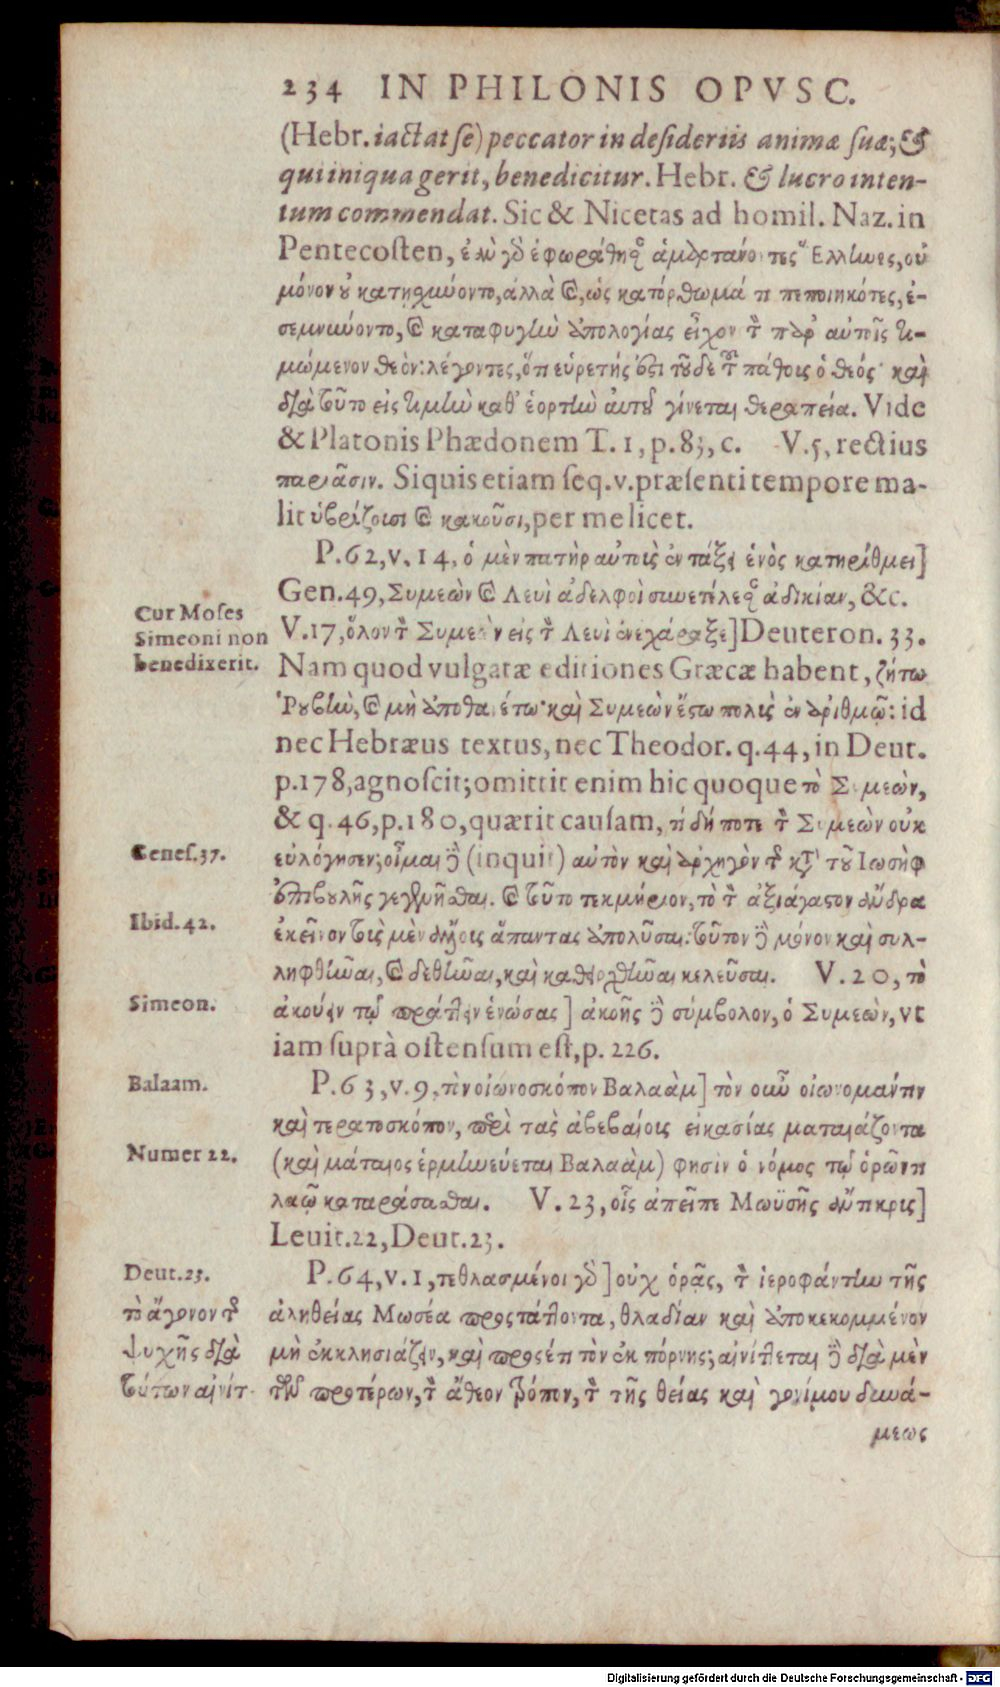 234 IN PHILONIS OPVSC.
(Hebr. iactat se) peccator in desideriis animæ suæ; &
qui iniqua gerit, benedicitur. Hebr. & lucro inten-
tum commendat. Sic & Nicetas ad homil. Naz. in
Pentecosten, ἐν ᾧ γὸ ἐφωράθησαν ἁμαρτάνοντες Ἕλλίωες, οὐ
μόνον οὐ κατηχιώοντο, ἀλλὰ καὶ, ὡς κατόρθωμά τι πεποιηκότες, ἐ-
σεμνιώοντο, καὶ καταφυγίω ἀπολογίας εἶχον τὸν παρ᾽ αὐτοῖς τι-
μώμενον θεόν: λέγοντες, ὅτι εὑρετής ἐστι τοῦδε τοῦ πάθοις ὁ θεός· καὶ
διὰ τοῦτο εἰς τιμίω καθ᾽ ἑορτίω αὐτοῦ γίνεται θεραπεία. Vide
& Platonis Phædonem T. 1, p. 83, c. V. 5, rectius
παριᾶσιν. Siquis etiam seq. v. præsenti tempore ma-
lit ὑβρίζοισι καὶ κακοῦσι, per me licet.
P. 62, v. 14, ὁ μὲν πατὴρ αὐτοὶς ἐν τάξει ἑνὸς κατηρίθμει]
Gen. 49, Συμεὼν καὶ Λευὶ ἀδελφοὶ σιωετέλεσαν ἀδικίαν, &c.
Cur Moses
Simeoni non
benedixerit.
V. 17, ὅλον τὸν Συμεὼν εἰς τὸν Λευὶ ἐνεχάραξε] Deuteron. 33.
Nam quod vulgatæ editiones Græcæ habent, ζήτω
Ῥουβίω, καὶ μὴ ἀποθανέτω· καὶ Συμεὼν ἔστω πολὺς ἐν ἀριθμῷ: id
nec Hebræus textus, nec Theodor. q. 44, in Deut.
p. 178, agnoscit; omittit enim hic quoque τὸ Συμεὼν,
& q. 46, p. 180, quærit causam, τί δή ποτε τὸν Συμεὼν οὐκ
Genes. 37.
εὐλόγησεν; οἶμαι δὲ (inquit) αὐτὸν καὶ ἀρχηγὸν τῆς κατὰ τοῦ Ιωσὴφ
ἐπιβουλῆς γεγενῆσθαι. καὶ τοῦτο τεκμήριον, τὸ τὸν ἀξιάγαστον ἄνδρα
Ibid. 42.
ἐκεῖνον τοὶς μὲν ἄλλοις ἅπαντας ἀπολῦσαι: τοῦτον δὲ μόνον καὶ συλ-
ληφθίωαι, καὶ δεθίωαι, καὶ καθειρχθίωαι κελεῦσαι. V. 20, τὸ
Simeon.
ἀκούειν τῷ πράττειν ἑνώσας] ἀκοῆς δὲ σύμβολον, ὁ Συμεὼν, vt
iam suprà ostensum est, p. 226.
Balaam.
P. 63, v. 9, τὸν οἰωνοσκόπον Βαλαὰμ] τὸν οιωῦ οἰωνομάντιν
καὶ τερατοσκόπον, περὶ τὰς ἀβεβαίοις εἰκασίας ματαιάζοντα
Numer 22.
(καὶ μάταιος ἑρμίωεύεται Βαλαὰμ) φησὶν ὁ νόμος τῷ ὁρῶντι
λαῷ καταράσασθαι. V. 23, οἷς ἀπεῖπε Μωϋσῆς ἄντικρις]
Leuit. 22, Deut. 23.
Deut. 23.
τὸ ἄγονον τῆς
ψυχῆς διὰ
τούτων αἰνίτ-
P. 64, v. 1, τεθλασμένοι γὸ] οὐχ ὁρᾷς, τὸν ἱεροφάντίω τῆς
ἀληθείας Μωσέα προςτάττοντα, θλαδίαν καὶ ἀποκεκομμένον
μὴ ἐκκλησιάζειν, καὶ προςέτι τὸν ἐκ πόρνης; αἰνίττεται δὲ διὰ μὲν
τῶν προτέρων, τὸν ἄθεον τρόπον, τὸν τῆς θείας καὶ γονίμου διωά-
μεως
Digitalisierung gefördert durch die Deutsche Forschungsgemeinschaft - DFG